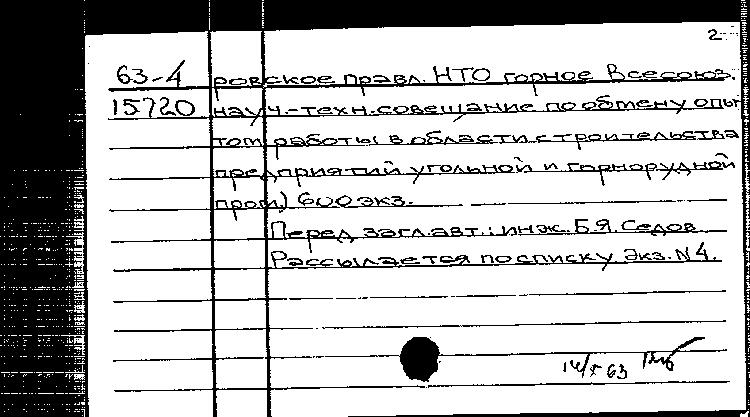 2
63-4 ровское правл. НТО горное Всесоюз.
15720 науч.-техн. совещание по обмену опы
том работы в области строительства
предприятий угольной и горнорудной
пром.) 600 экз.
Перед загл. авт.: инж. Б.Я. Седов.
Рассылается по списку. Экз. N 4.
14/X 63